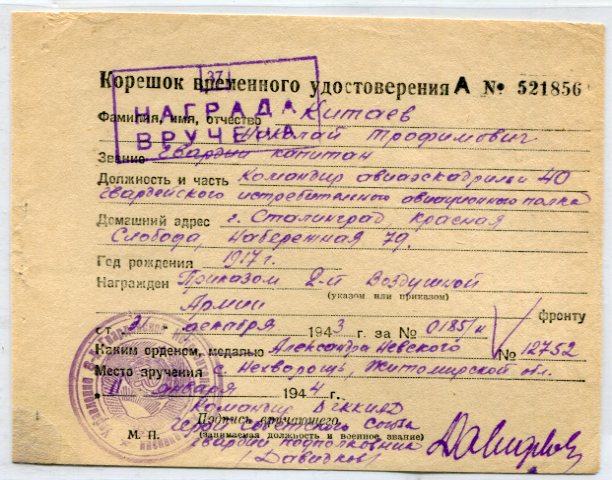 Корешок временного удостоверения А № 521856
371
НАГРАДА
ВРУЧЕНА
Фамилия, имя, отчество Китаев
Николай Трофимович
Звание Гвардии капитан
Должность и часть Командир авиаэскадрильи 40
Гвардейского истребительного авиационного полка
Домашний адрес г. Сталинград Красная
Слобода Набережная 79.
Год рождения 1917 г.
Награжден Приказом 2-й Воздушной
(указом или приказом)
Армии фронту
от 31 декабря 1943 г. за № 0185/н
Каким орденом, медалью Александра Невского № 12752
Место вручения с. Нехворощь, Житомирской обл.
" 11 " января 1944 г.
Командир
Подпись вручающего
Герой Советского Союза
М. П. (занимаемая должность и военное звание)
Гвардии подполковник
(Давидков)